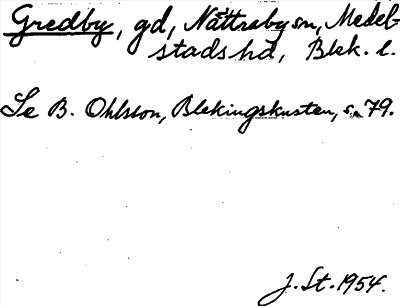 Gredby, gd, Nättraby sn, Medel-
stads hd, Blek. l.
Se B. Ohlsson, Blekingskusten, s. 79.
J. St. 1954.